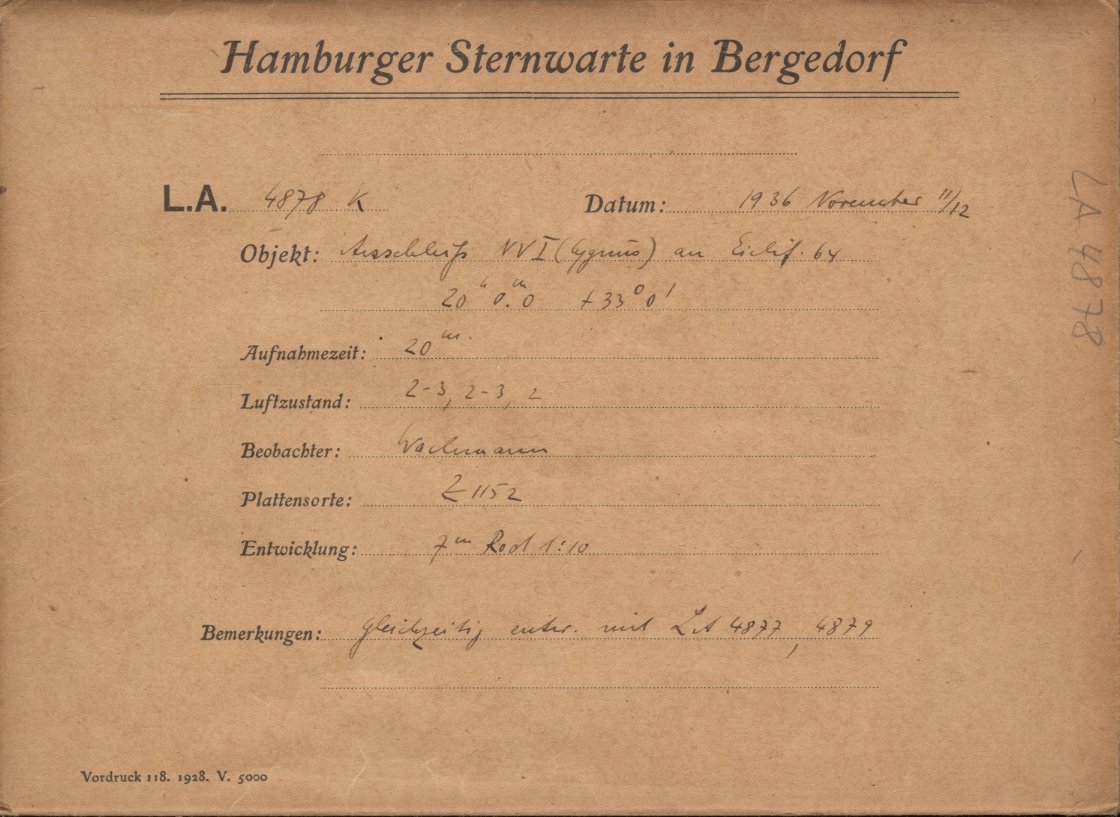 Hamburger Sternwarte in Bergedorf
L.A. 4878 K Datum: 1936 November 11/12
Objekt: Anschluß NVI (Cygnus) an Eichf. 64
20ʰ 0.ᵐ0 +33° 0'
Aufnahmezeit: 20ᵐ.
Luftzustand: 2-3, 2-3, 2
Beobachter: Wachmann
Plattensorte: Z 1152
Entwicklung: 7ᵐ Rod 1:10
Bemerkungen: gleichzeitig entw. mit LA 4877, 4879
Vordruck 118. 1928. V. 5000
LA 4878